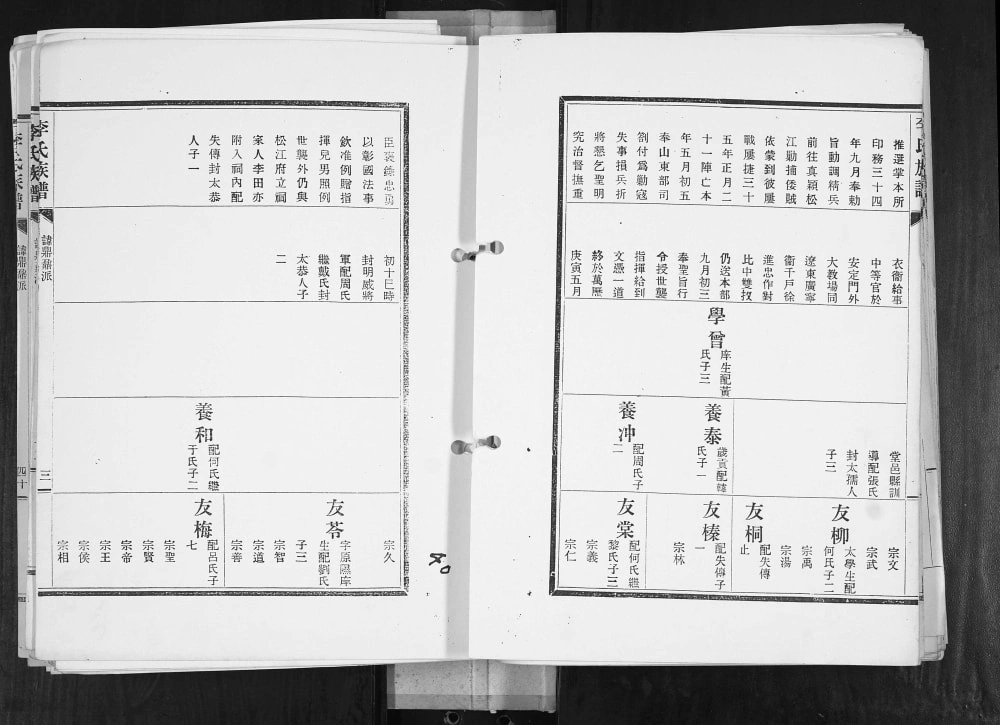 推選掌本所
印務三十四
年九月奉勅
旨動調精兵
前往真穎松
江勦捕倭賊
依蒙到彼屢
戰屢捷三十
五年正月二
十一陣亡本
年五月初五
奉山東部司
劄付爲勦寇
失事損兵折
將懇乞聖明
究治督撫重
衣衛給事
中等官於
安定門外
大教場同
遼東廣寧
衞千戸徐
進忠作對
比中雙㧞
仍送本部
九月初三
奉聖旨行
令授世襲
指揮給到
文憑一道
終於萬曆
庚寅五月
學曾
庠生配黃
氏子三
堂邑縣訓
導配張氏
封太孺人
子三
養泰
歲貢配韓
氏子一
養冲
配周氏子
二
宗文
宗武
友柳
太學生配
何氏子二
宗禹
宗湯
友桐
配失傳
止
友榛
配失傳子
一
宗林
友棠
配何氏繼
黎氏子三
宗義
宗仁
以彰國法事
欽准例贈指
揮兒男照例
世襲外仍與
松江府立祠
家人李田亦
附入祠內配
失傳封太恭
人子一
初十巳時
封明威將
軍配周氏
繼戴氏封
太恭人子
二
養和
配何氏繼
于氏子二
宗久
友苓
字原隰庠
生配劉氏
子三
宗智
宗道
宗善
友梅
配呂氏子
七
宗聖
宗賢
宗帝
宗王
宗侯
宗相
李氏族譜
諱鼎鼐派
三
李氏族譜
諱鼎鼐派
四十